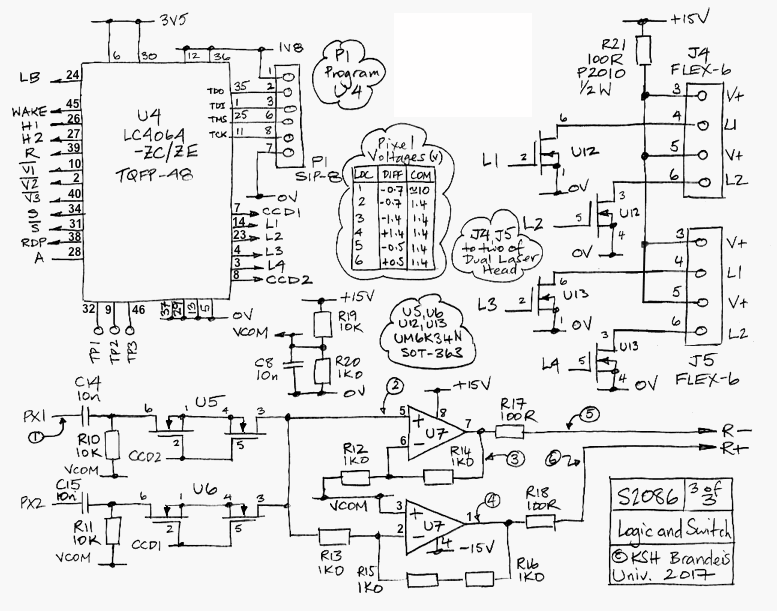 3V5
6 30
12 36
1V8
P1
Program
U4
+15V
R21
100R
P2010
1/2W
J4
FLEX-6
3 V+
4 L1
5 V+
6 L2
LB 24
WAKE 45
H1 26
H2 27
R 39
V1 10
V2 2
V3 40
S 34
S 31
RDP 38
A 28
U4
LC4064
-ZC/ZE
TQFP-48
TDO 35 2
TDI 1 3
TMS 25 6
TCK 11 8
1
7
P1
SIP-8
0V
7 CCD1
14 L1
23 L2
4 L3
3 L4
8 CCD2
32 9 46
37 29 13 5 0V
TP1 TP2 TP3
Pixel
Voltages (v)
LOC DIFF COM
1 -0.7 ≅10
2 -0.7 1.4
3 -1.4 1.4
4 +1.4 1.4
5 -0.5 1.4
6 +0.5 1.4
L1 2 6 U12 1
0V
L2 5 3 U12 4
0V
J4, J5
to two of
Dual Laser
Head
3 V+
4 L1
5 V+
6 L2
J5
FLEX-6
L3 2 6 U13 1
0V
L4 5 3 U13 4
0V
+15V
R19
10K
VCOM
C8
10n
R20
1K0
0V
U5, U6
U12, U13
UM6K34N
SOT-363
PX1 1
C14
10n
R10
10K
VCOM
6 1 U5 4 3
2 5
CCD2
2
+15V
5 8 7
6 U7
R17
100R
5
R-
R+
R12
1K0
R14
1K0
3
6
VCOM
PX2
C15
10n
R11
10K
VCOM
6 1 U6 4 3
2 5
CCD1
3 U7 1
2 4
-15V
4
R18
100R
R13
1K0
R15
1K0
R16
1K0
S2086 3 of 3
Logic and Switch
© KSH Brandeis
Univ. 2017